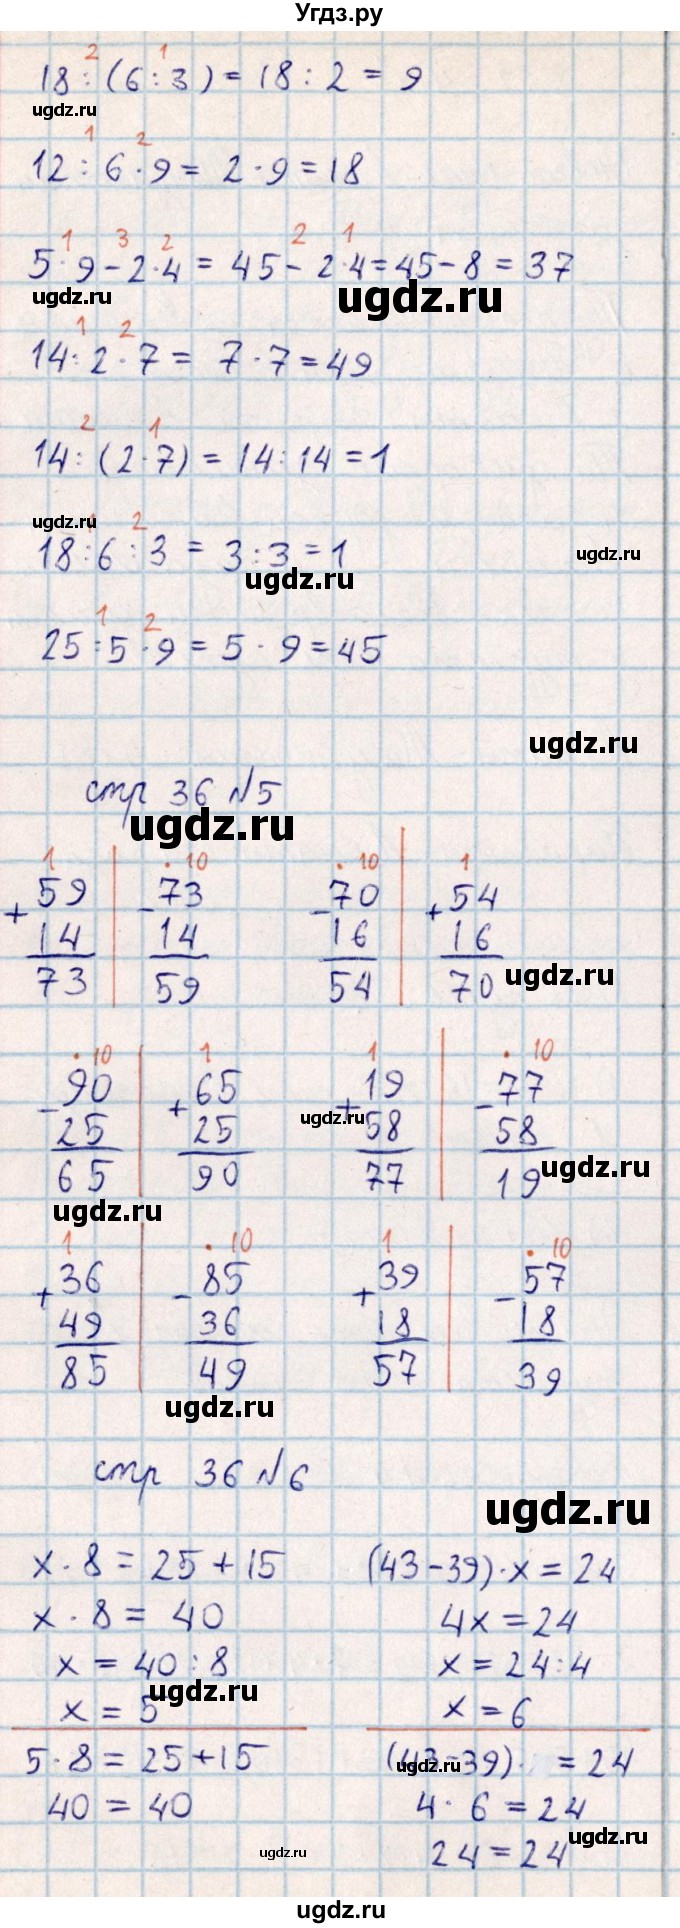 Угдз.ру
2 1
18 : (6 : 3) = 18 : 2 = 9
ugdz.ru
1 2
12 : 6 · 9 = 2 · 9 = 18
1 3 2 2 1
5 · 9 - 2 · 4 = 45 - 2 · 4 = 45 - 8 = 37
ugdz.ru ugdz.ru
1 2
14 : 2 · 7 = 7 · 7 = 49
2 1
14 : (2 · 7) = 14 : 14 = 1
ugdz.ru
1 2
18 : 6 : 3 = 3 : 3 = 1
ugdz.ru ugdz.ru
1 2
25 : 5 · 9 = 5 · 9 = 45
ugdz.ru
стр 36 №5
ugdz.ru
1 · 10 · 10 1
+ 59 - 73 - 70 + 54
14 14 16 16
73 59 54 70
ugdz.ru
· 10 1 1 · 10
- 90 + 65 + 19 - 77
25 25 58 58
ugdz.ru
65 90 77 19
ugdz.ru
ugdz.ru
1 · 10 1 · 10
+ 36 - 85 + 39 - 57
49 36 18 18
85 49 57 39
ugdz.ru
стр 36 №6
ugdz.ru
x · 8 = 25 + 15 (43 - 39) · x = 24
x · 8 = 40 4x = 24
x = 40 : 8 x = 24 : 4
ugdz.ru
x = 5 x = 6
5 · 8 = 25 + 15 (43 - 39) · = 24
ugdz.ru
40 = 40 4 · 6 = 24
ugdz.ru
24 = 24
ugdz.ru
ugdz.ru